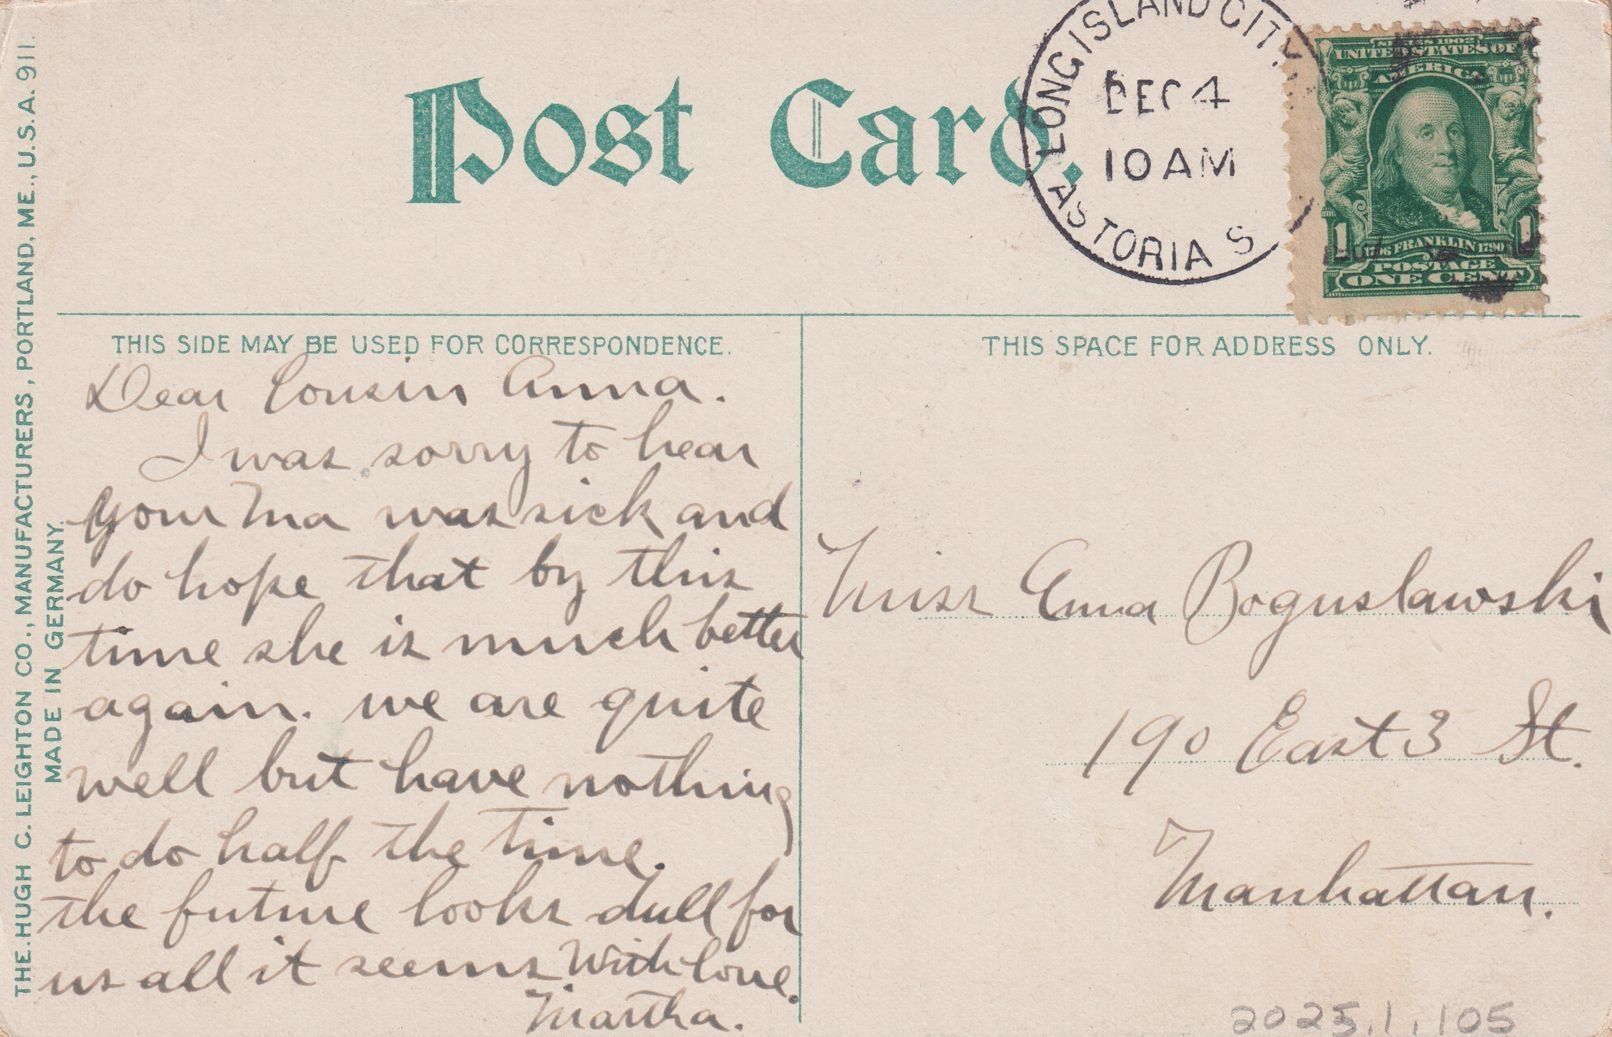 Post Card.
LONG ISLAND CITY.
DEC 4
10 AM
ASTORIA S
SERIES 1902
UNITED STATES OF
AMERICA
1 1
1706 FRANKLIN 1790
POSTAGE
ONE CENT
THE HUGH C. LEIGHTON CO., MANUFACTURERS, PORTLAND, ME., U.S.A. 911.
MADE IN GERMANY.
THIS SIDE MAY BE USED FOR CORRESPONDENCE.
Dear Cousin Anna.
I was sorry to hear
your Ma was sick and
do hope that by this
time she is much better
again. we are quite
well but have nothing
to do half the time.
the future looks dull for
us all it seems With love.
Martha.
THIS SPACE FOR ADDRESS ONLY.
Miss Anna Boguslawski
190 East 3 St.
Manhattan.
2025.1.105